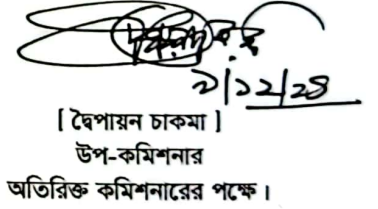 ৯/১২/২৪
[ দ্বৈপায়ন চাকমা ]
উপ-কমিশনার
অতিরিক্ত কমিশনারের পক্ষে।